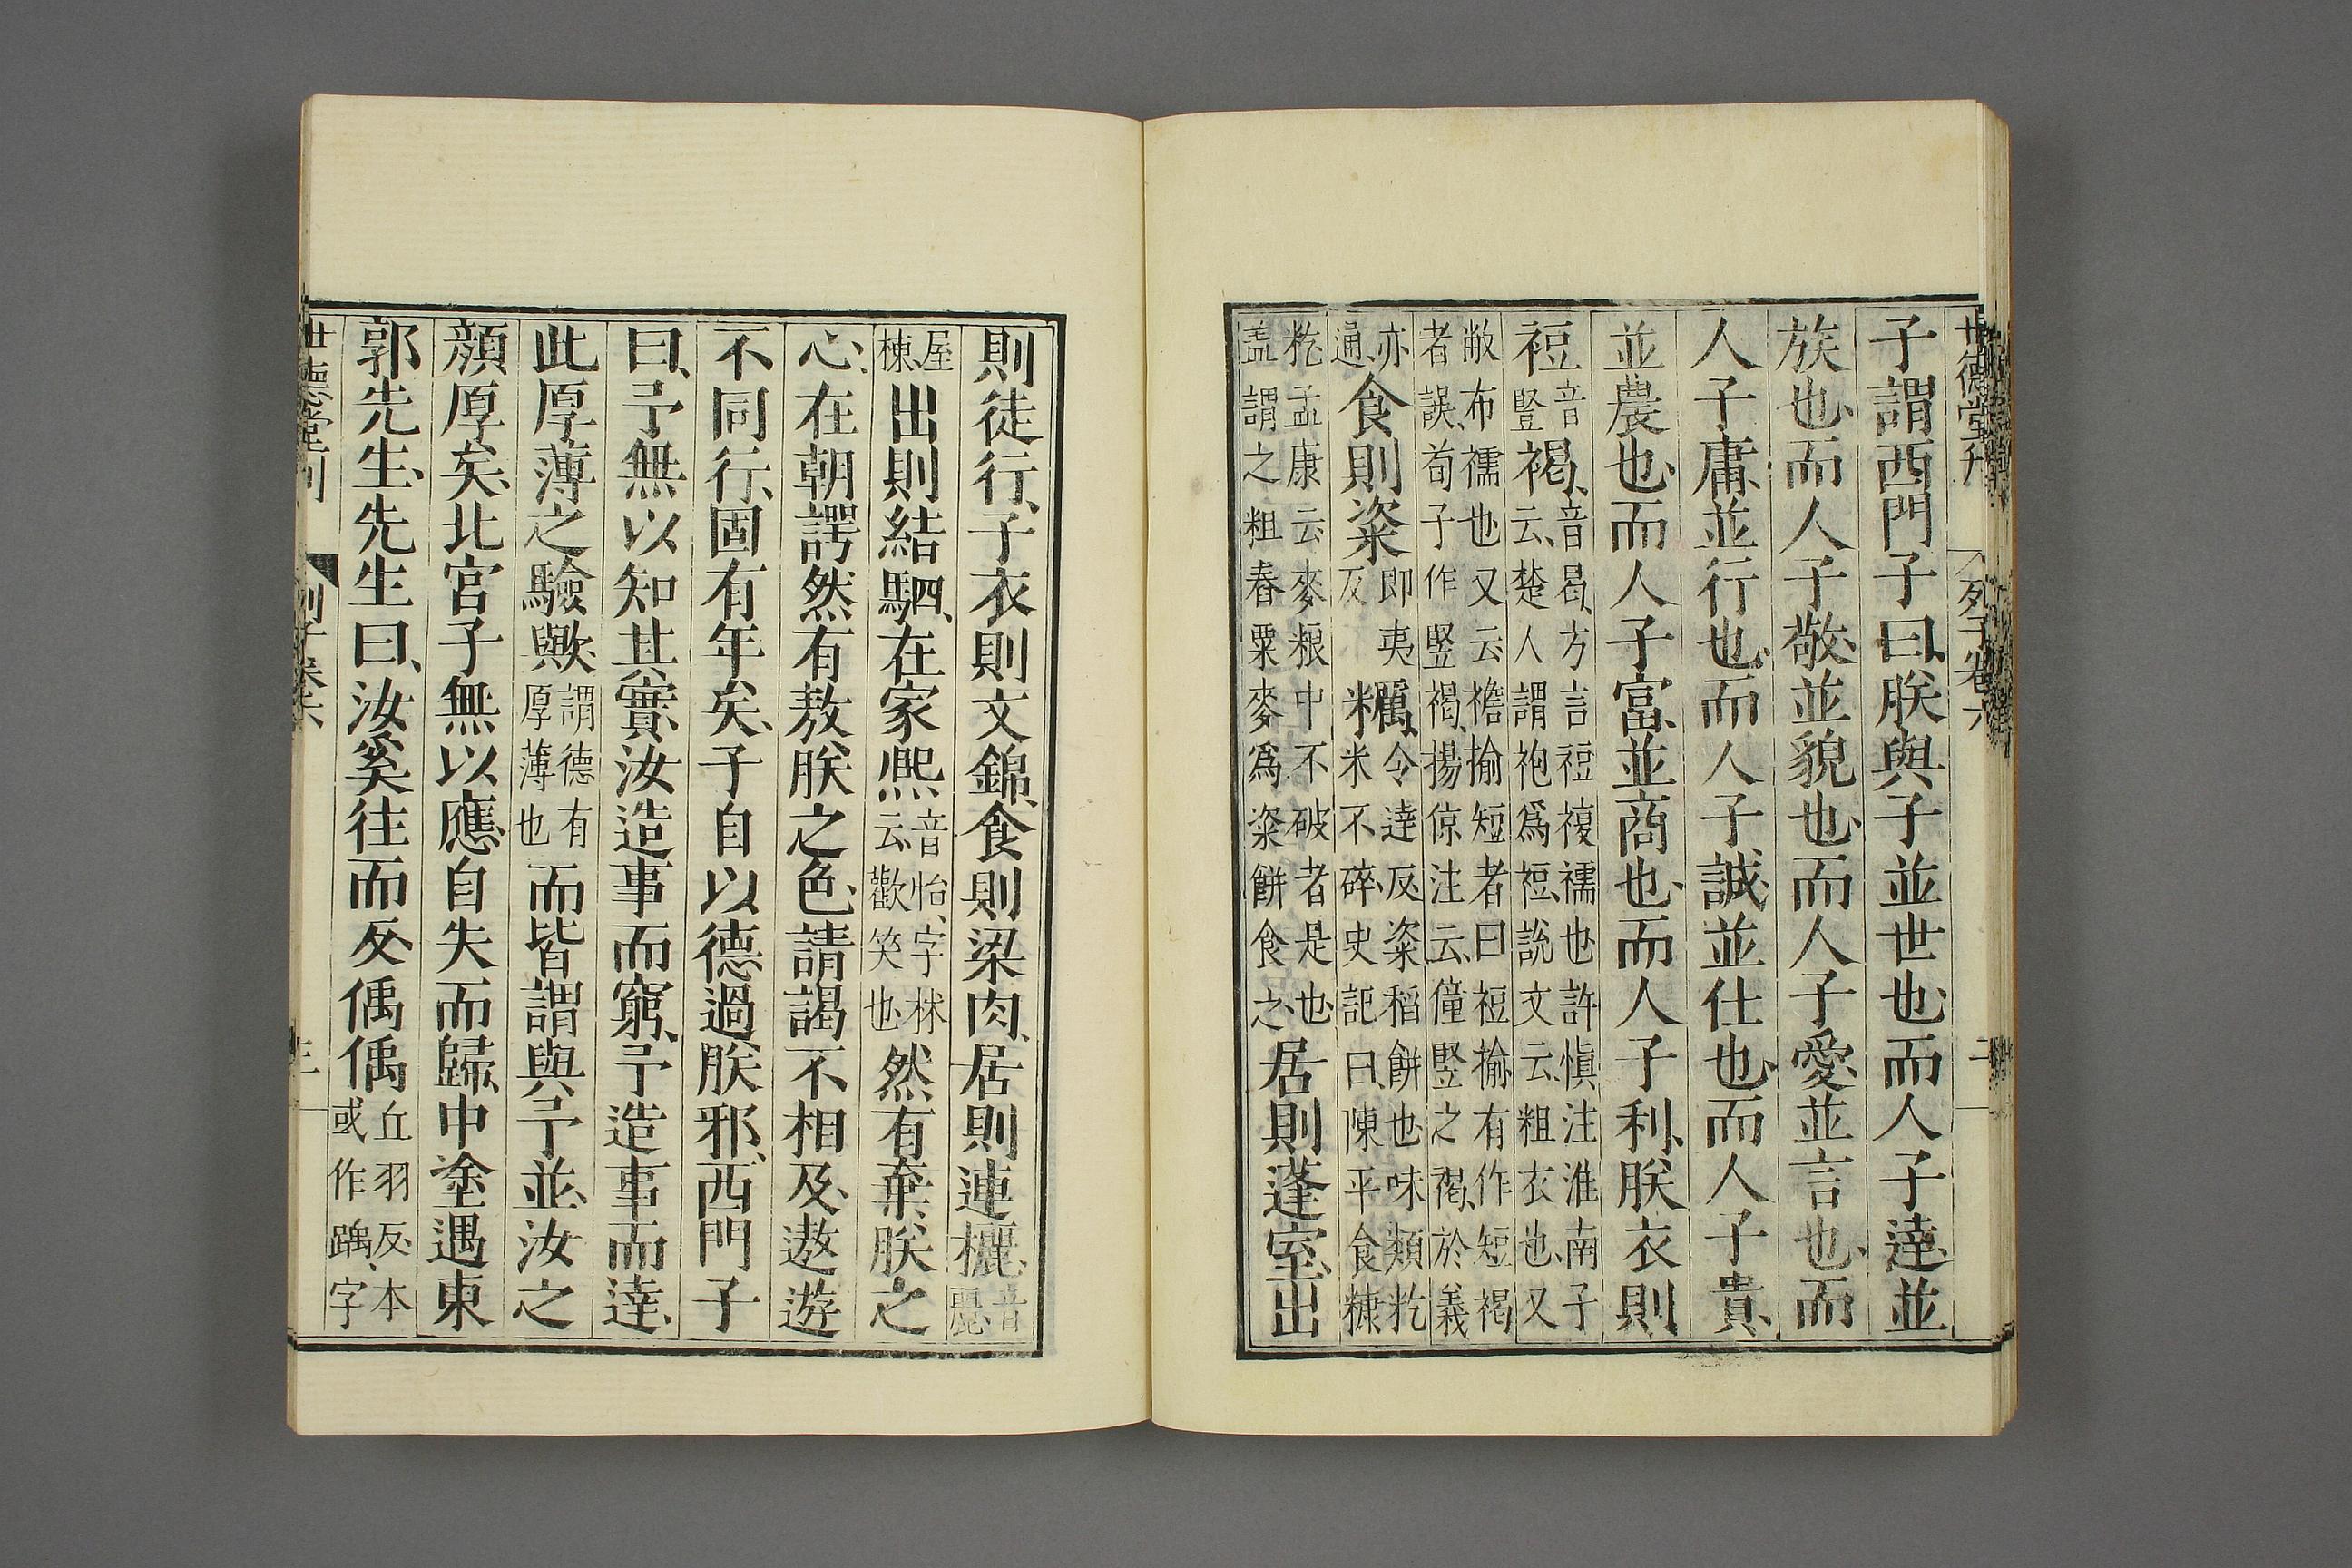 世德堂刊 列子卷六 二
子謂西門子曰、朕與子並世也、而人子達、並
族也、而人子敬、並貌也、而人子愛、並言也、而
人子庸、並行也、而人子誠、並仕也、而人子貴、
並農也、而人子富、並商也、而人子利、朕衣則
裋音豎褐、音曷、方言裋複襦也許愼注淮南子云、楚人謂袍爲裋、說文云、粗衣也、又
敝布襦也又云襜揄短者曰裋揄有作短褐者誤、荀子作豎褐、揚倞注云、僮豎之褐、於義
亦通、食則粢即夷反糲、令達反粢稻餅也味類籺米不碎、史記曰、陳平食糠
籺孟康云麥粮中不破者是也盖謂之粗舂粟麥爲粢餅食之居則蓬室、出
則徒行、子衣則文錦、食則梁肉、居則連欐、音麗、
屋棟、出則結駟、在家熙音怡、字林云歡笑也然有棄朕之
心、在朝諤然有敖朕之色、請謁不相及、遨遊
不同行、固有年矣、子自以德過朕邪、西門子
曰、予無以知其實、汝造事而窮、予造事而達、
此厚薄之驗歟、謂德有厚薄也而皆謂與予並、汝之
顏厚矣、北宮子無以應、自失而歸、中塗遇東
郭先生、先生曰、汝奚往而反、偊偊丘羽反、本或作踽、字
世德堂刊 列子卷六 三